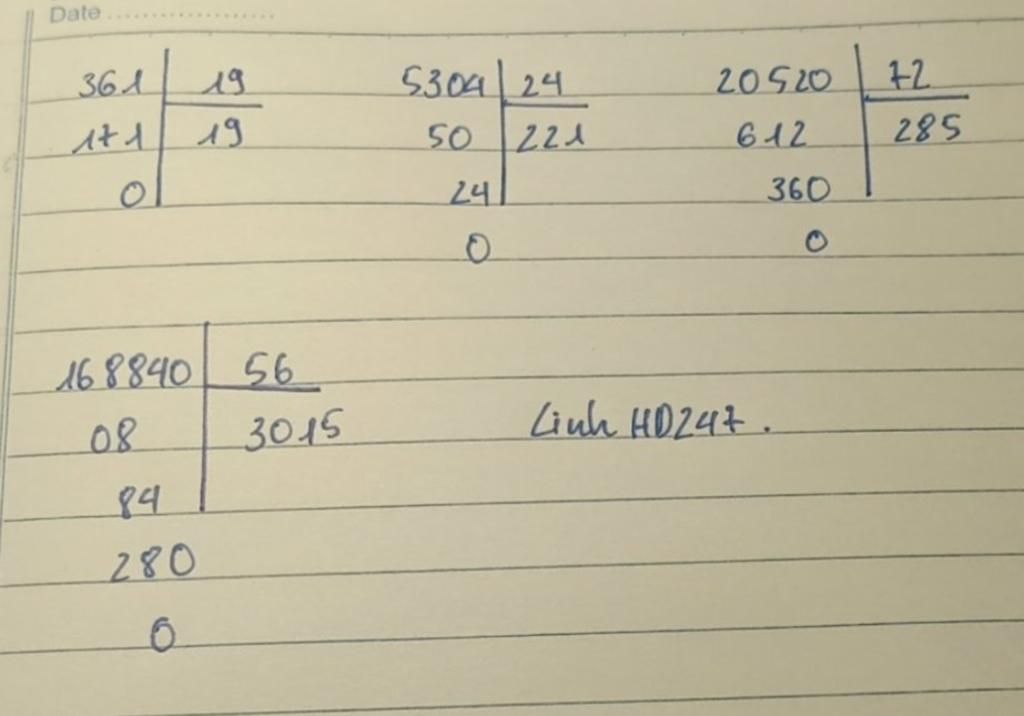 Date ....................
361 19
171 19
0
5304 24
50 221
24
0
20520 72
612 285
360
0
168840 56
08 3015
84
280
0
Linh HD247.